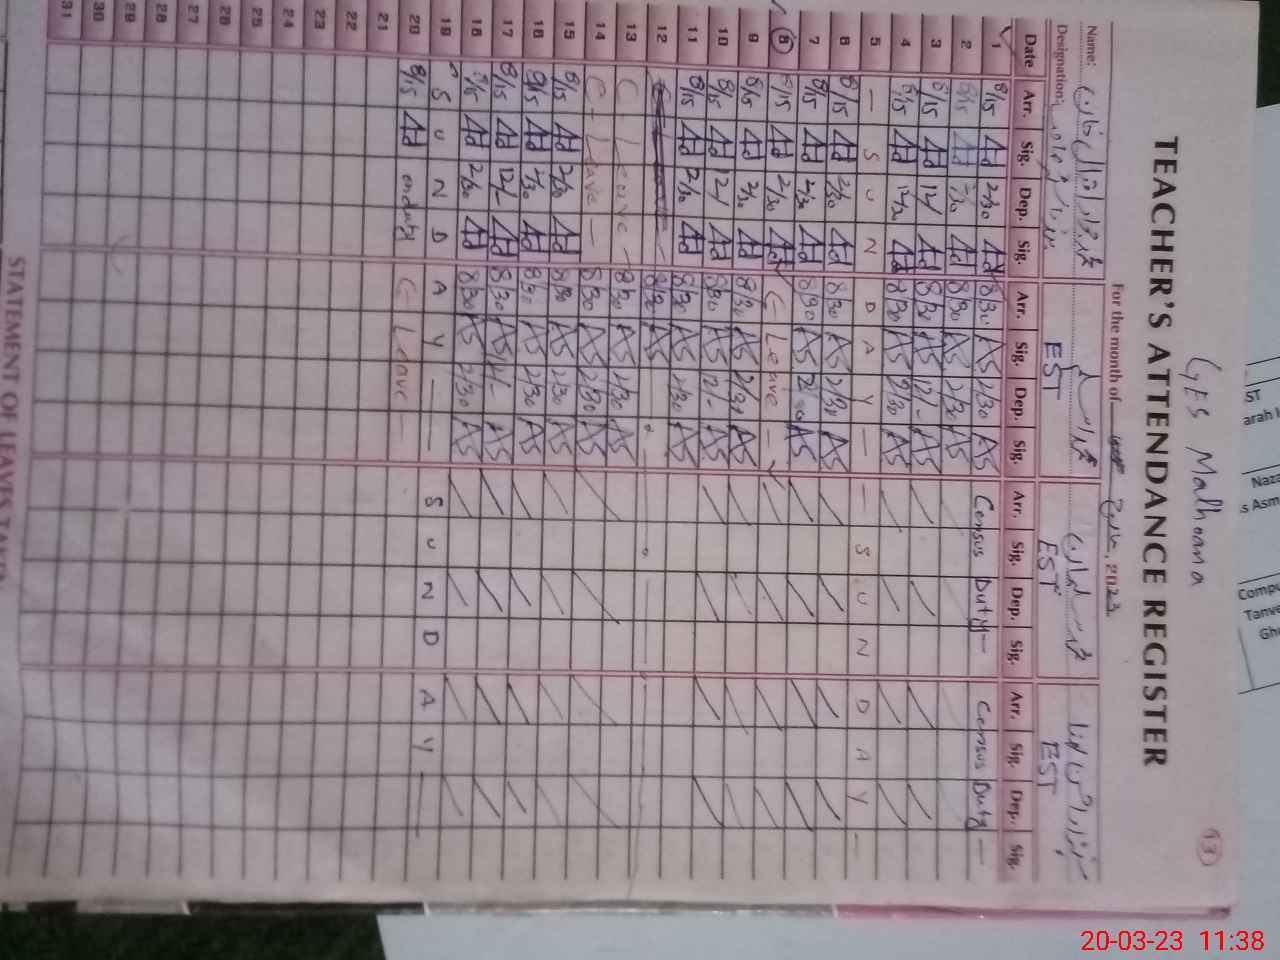 13
GES Malhoana
TEACHER'S ATTENDANCE REGISTER
For the month of 2023
Name:
Designation:
EST EST EST
Date Arr. Sig. Dep. Sig. Arr. Sig. Dep. Sig. Arr. Sig. Dep. Sig. Arr. Sig. Dep. Sig.
1 8/15 Ad 2/30 Ad 8/30 AS 2/30 AS Census Duty — Census Duty —
2 8/15 Ad 2/30 Ad 8/30 AS 2/30 AS
3 8/15 Ad 12/ Ad 8/30 AS 12/- AS
4 8/15 Ad Ad 8/30 AS 2/30 AS
5 — S U N D A Y — — S U N D A Y —
6 8/15 Ad 2/30 Ad 8/30 AS 2/30 AS
7 8/15 Ad 2/30 Ad 8/30 AS 2/30 AS
8 8/15 Ad 2/30 Ad C- Leave —
9 8/15 Ad 2/30 Ad 8/30 AS 2/30 AS
10 8/15 Ad 12/ Ad 8/30 AS 12/- AS
11 8/15 Ad 2/30 Ad 8/30 AS 2/30 AS
12 8/30 AS
13 C Leave - 8/30 AS 2/30 AS
14 C- Leave — 8/30 AS 2/30 AS
15 8/15 Ad 2/30 Ad 8/30 AS 2/30 AS
16 8/15 Ad 2/30 Ad 8/30 AS 2/30 AS
17 8/15 Ad 12/ Ad 8/30 AS 12/- AS
18 8/15 Ad 2/30 Ad 8/30 AS 2/30 AS
19 S U N D A Y — — S U N D A Y —
20 8/15 Ad onduty C- Leave —
21
22
23
24
25
26
27
28
29
30
31
STATEMENT OF LEAVES TAKEN
ST
arah
Naza
s Asm
Compu
Tanve
Gh
20-03-23 11:38